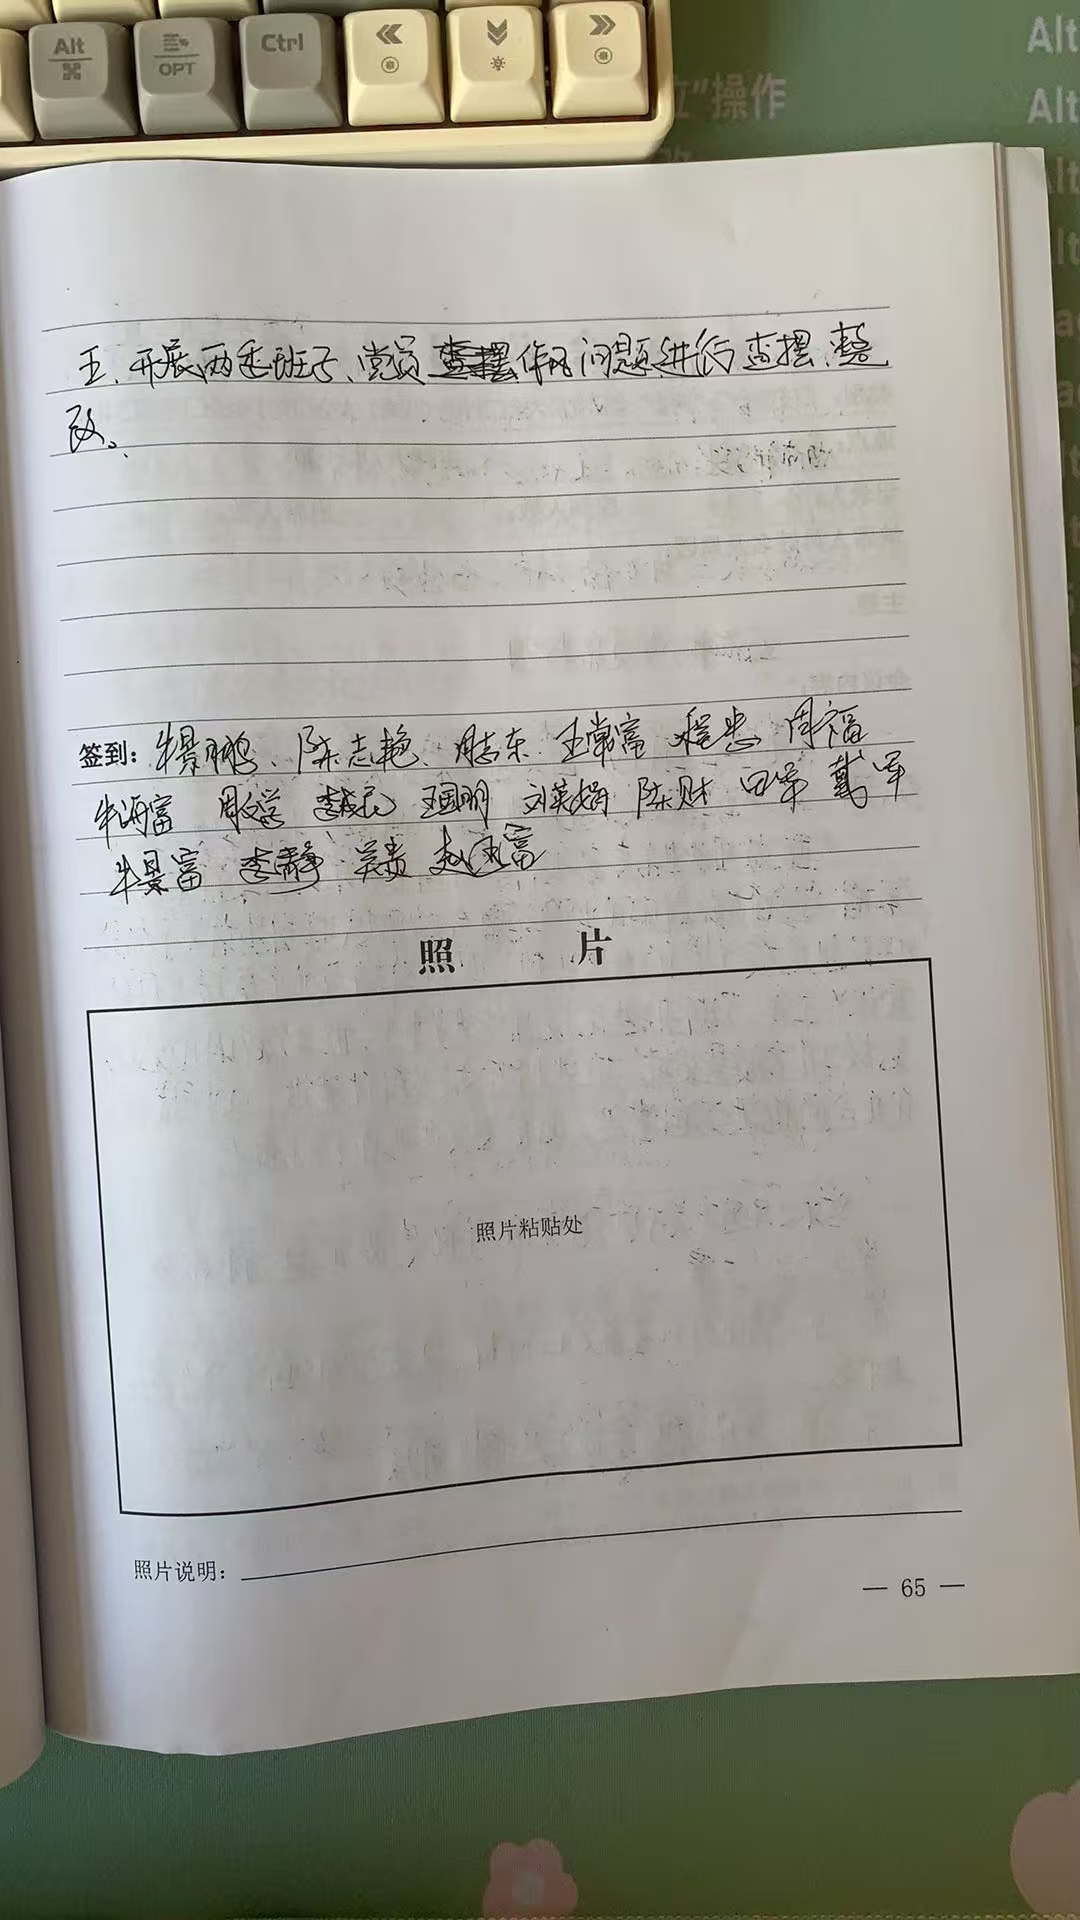 Alt
OPT
Ctrl
位"操作
Alt
Alt
五、开展两委班子、党员查摆作风问题进行查摆、整
改。
签到：牛景鹏、陈志艳、周志东、王常富 程忠 周福
牛海富 周文学 李成民 王国明 刘英娟 陈财 田军 戴军
牛景富 李静 关贵 赵国富
照片
照片粘贴处
照片说明：
— 65 —